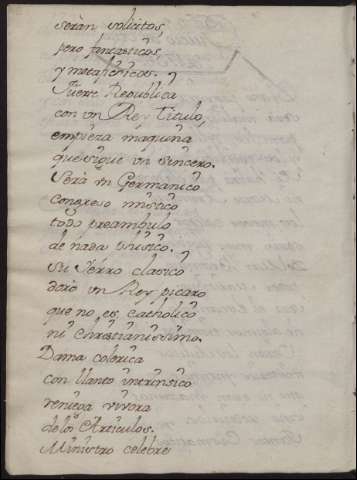 seràn solicitos,
pero fantasticos,
y metafisicos. 
Fuere Republica
con vn Rey Titulo,
empieza maquina
que sigue vn sincero.
Será vn Germanico
congreso mistico
todo preambulo
de nada vnisico.
su clasico
dorò vn Rey picaro
que no es catholico
ni christianissimo.
Dama colerica
con llanto intrinsico
reniega vivora
de los Articulos.
Ministro celebre